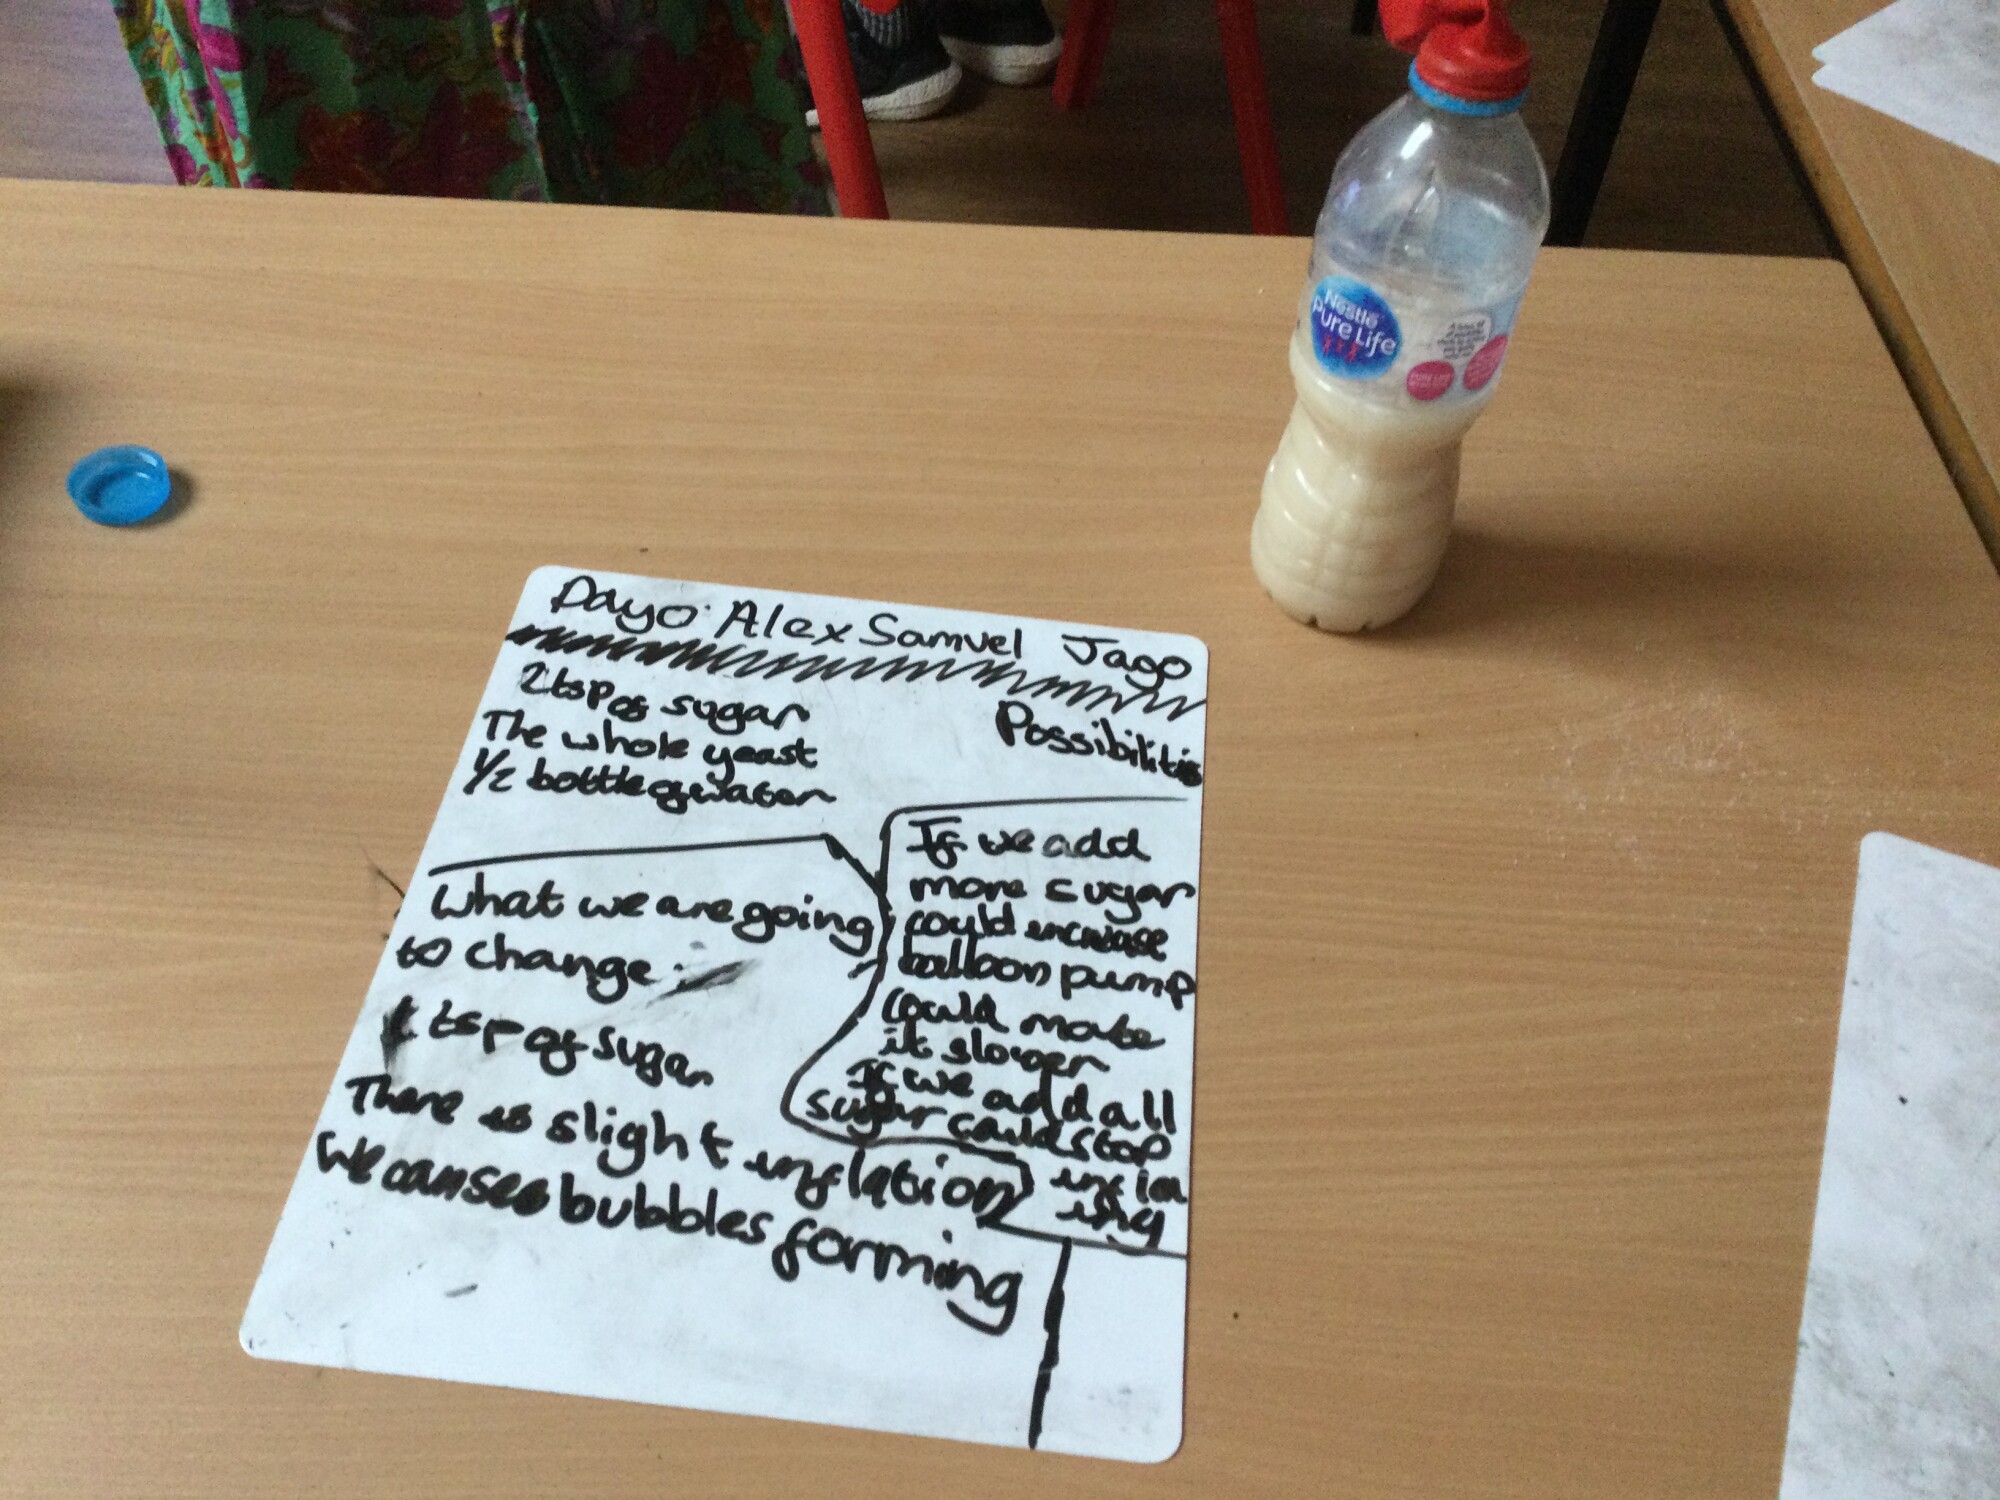 Nestlé
Pure Life
Dayo. Alex Samuel Jago
2 tsp of sugar
The whole yeast
1/2 bottle of water
What we are going
to change :
tsp of sugar
There is slight inflation
We can see bubbles forming
Possibilitis
If we add
more sugar
could increase
balloon pump
could make
it slower
If we add all
sugar could stop